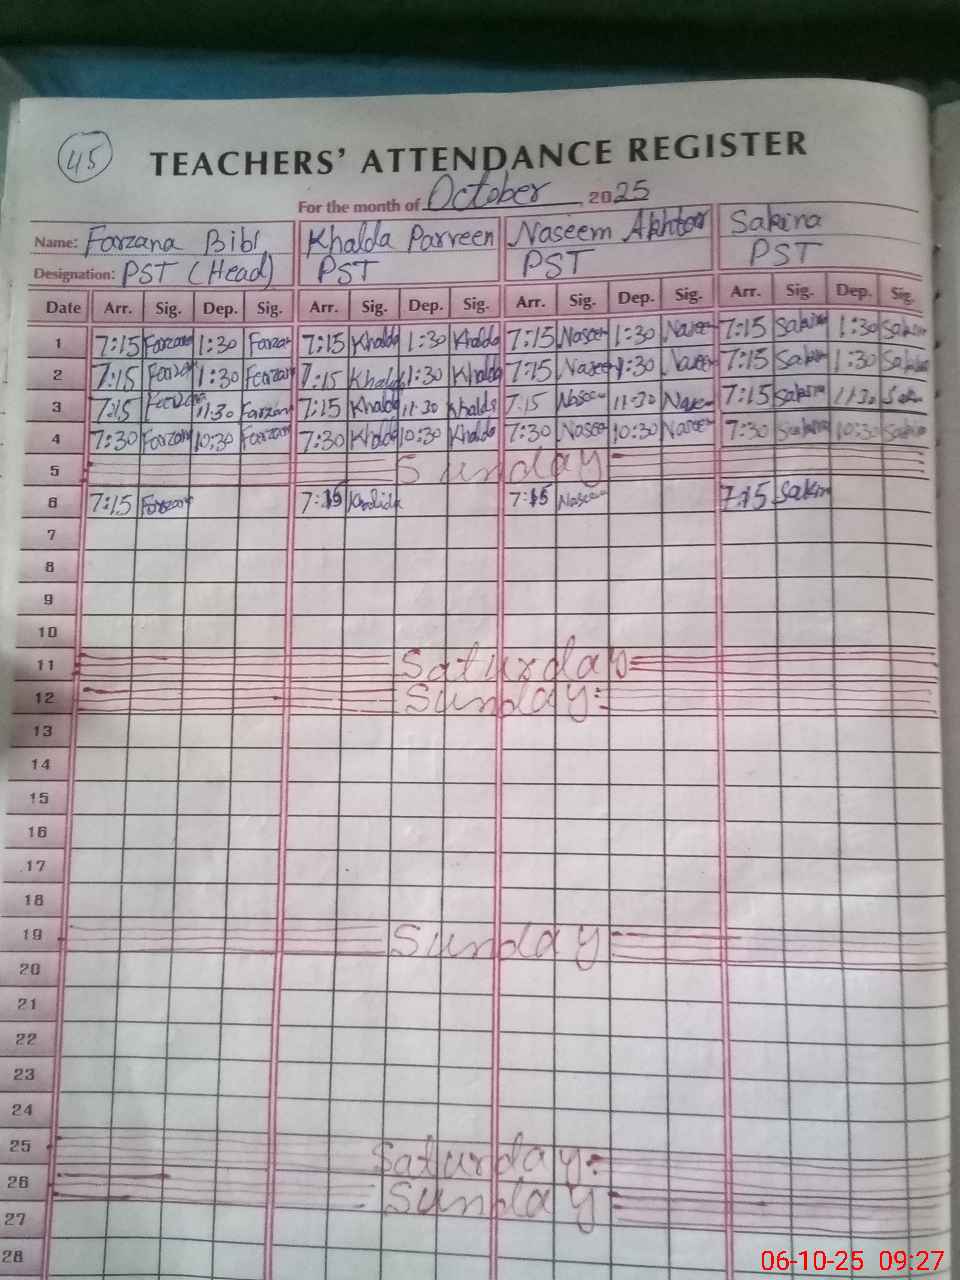 45
TEACHERS' ATTENDANCE REGISTER
For the month of October, 2025
Name: Farzana Bibi Khalda Parveen Naseem Akhtar Sakina
Designation: PST (Head) PST PST PST
Date Arr. Sig. Dep. Sig. Arr. Sig. Dep. Sig. Arr. Sig. Dep. Sig. Arr. Sig. Dep. Sig.
1 7:15 Farzan 1:30 Farzan 7:15 Khalda 1:30 Khalda 7:15 Naseem 1:30 Naseem 7:15 Sakina 1:30 Sakina
2 7:15 Farzan 1:30 Farzan 7:15 Khalda 1:30 Khalda 7:15 Naseem 1:30 Naseem 7:15 Sakina 1:30 Sakina
3 7:15 Farzan 11:30 Farzan 7:15 Khalda 11:30 Khalda 7:15 Naseem 11:30 Naseem 7:15 Sakina 11:30 Sakina
4 7:30 Farzan 10:30 Farzan 7:30 Khalda 10:30 Khalda 7:30 Naseem 10:30 Naseem 7:30 Sakina 10:30 Sakina
5 Sunday
6 7:15 Farzan 7:15 Khalida 7:15 Naseem 7:15 Sakin
7
8
9
10
11 Saturday
12 Sunday
13
14
15
16
17
18
19 Sunday
20
21
22
23
24
25 Saturday
26 Sunday
27
28
06-10-25 09:27